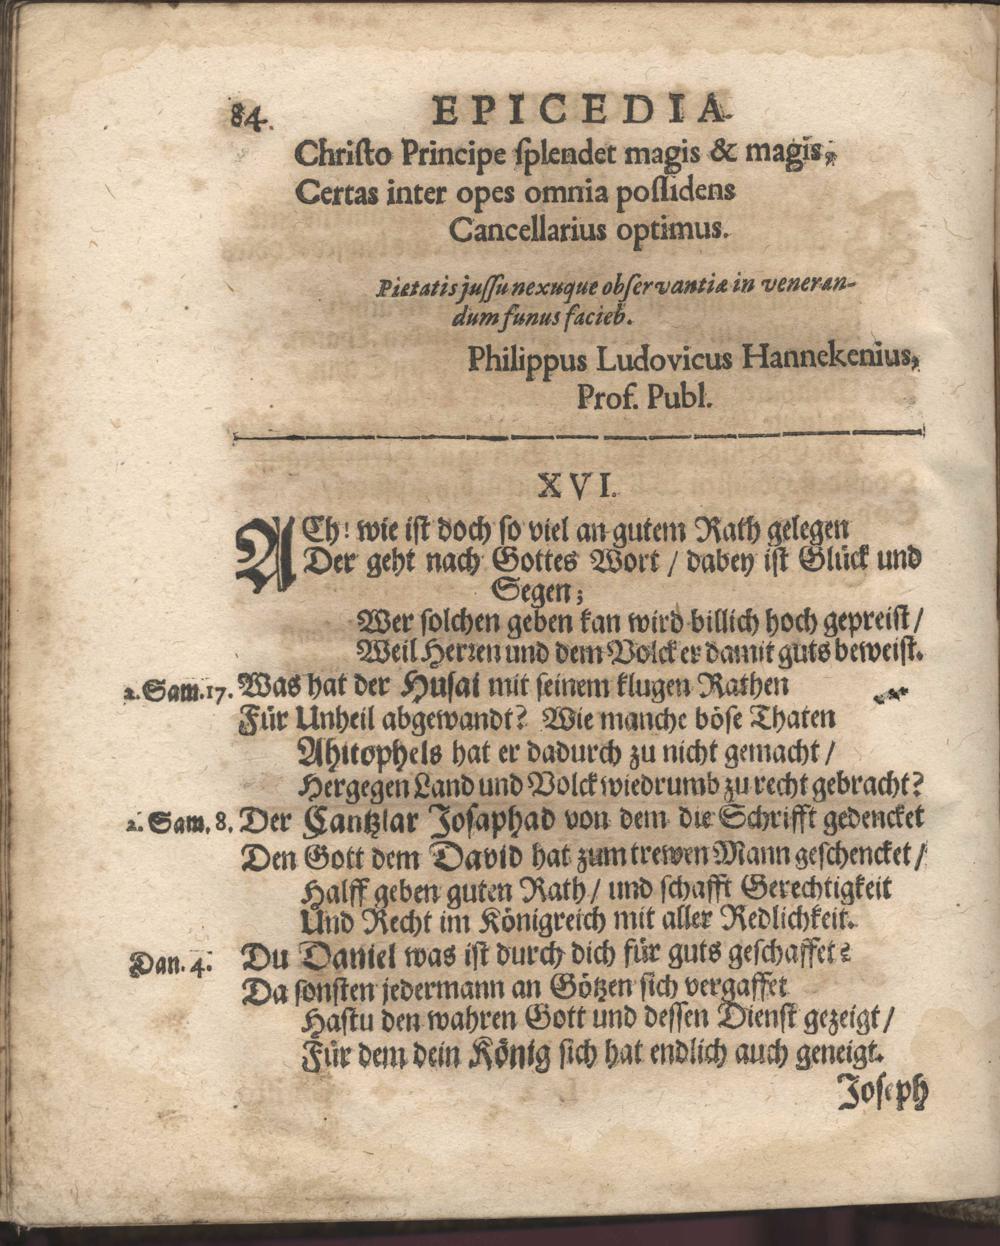 84.
EPICEDIA.
Christo Principe splendet magis & magis,
Certas inter opes omnia possidens
Cancellarius optimus.
Pietatis jussu nexuque observantiæ in veneran-
dum funus facieb.
Philippus Ludovicus Hannekenius,
Prof. Publ.
XVI.
ACh! wie ist doch so viel an gutem Rath gelegen
Der geht nach Gottes Wort / dabey ist Glück und
Segen;
Wer solchen geben kan wird billich hoch gepreist /
Weil Herren und dem Volck er damit guts beweist.
2. Sam. 17. Was hat der Husai mit seinem klugen Rathen
Für Unheil abgewandt? Wie manche böse Thaten
Ahitophels hat er dadurch zu nicht gemacht /
Hergegen Land und Volck wiedrumb zu recht gebracht?
2. Sam. 8. Der Cantzlar Josaphad von dem die Schrifft gedencket
Den Gott dem David hat zum trewen Mann geschencket /
Halff geben guten Rath / und schafft Gerechtigkeit
Und Recht im Königreich mit aller Redlichkeit.
Dan. 4. Du Daniel was ist durch dich für guts geschaffet?
Da sonsten jedermann an Götzen sich vergaffet
Hastu den wahren Gott und dessen Dienst gezeigt /
Für dem dein König sich hat endlich auch geneigt.
Joseph